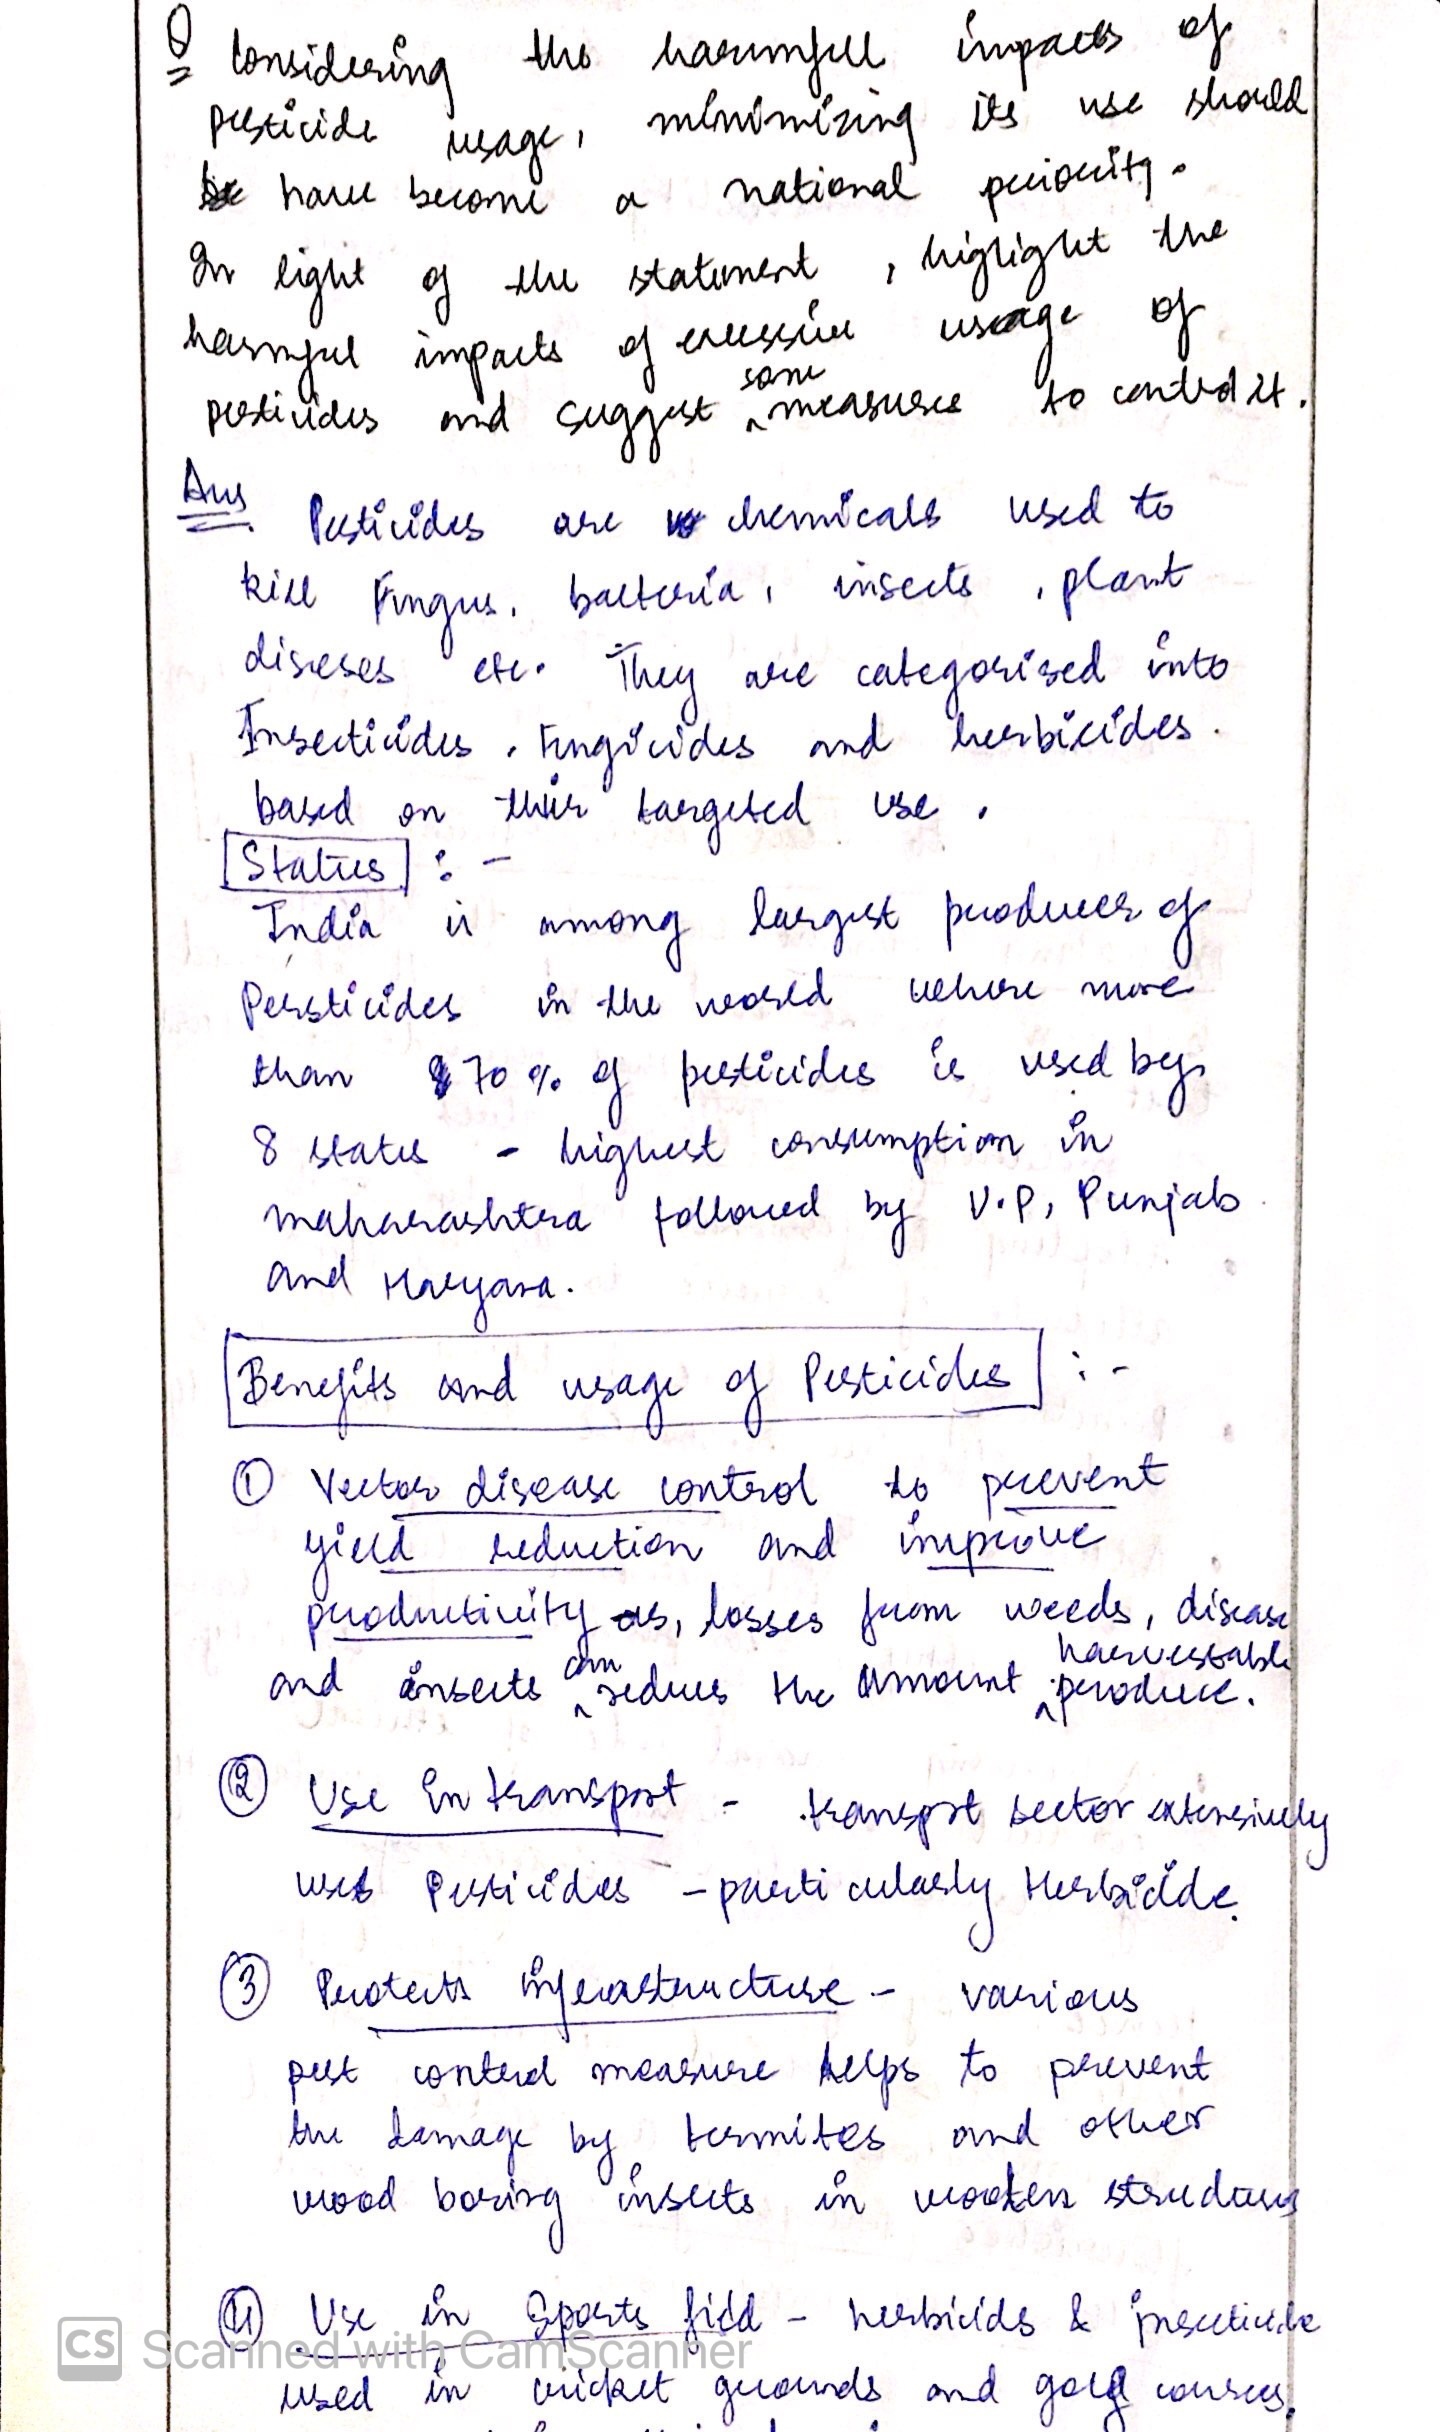 Q Considering the harmful impacts of
pesticide usage, minimizing its use should
have become a national periority.
In light of the statement, higlight the
harmful impacts of excessive usage of
pesticides and suggest some measures to control it.
Ans Pesticides are chemicals used to
kill Fungus, bacteria, insects, plant
diseses etc. They are categorised into
Insecticides, Fungicides and herbicides.
based on their targeted use.
Status :-
India is among largest producer of
Persticides in the world where more
than 70% of pesticides is used by
8 states - highest consumption in
maharashtra followed by U.P, Punjab
and Haryana.
Benefits and usage of Pesticides :-
① Vector disease control to prevent
yield reduction and improve
productivity as, losses from weeds, disease
and insects can reduces the amount harvestable produce.
② Use in transport - transport sector extensively
uses Pesticides - particularly Herbicide.
③ Protects infrastructure - various
pest control measure helps to prevent
the damage by termites and other
wood boring insects in wooden structures
④ Use in Sports field - herbicids & insecticide
used in cricket grounds and golf courses.
CS Scanned with CamScanner